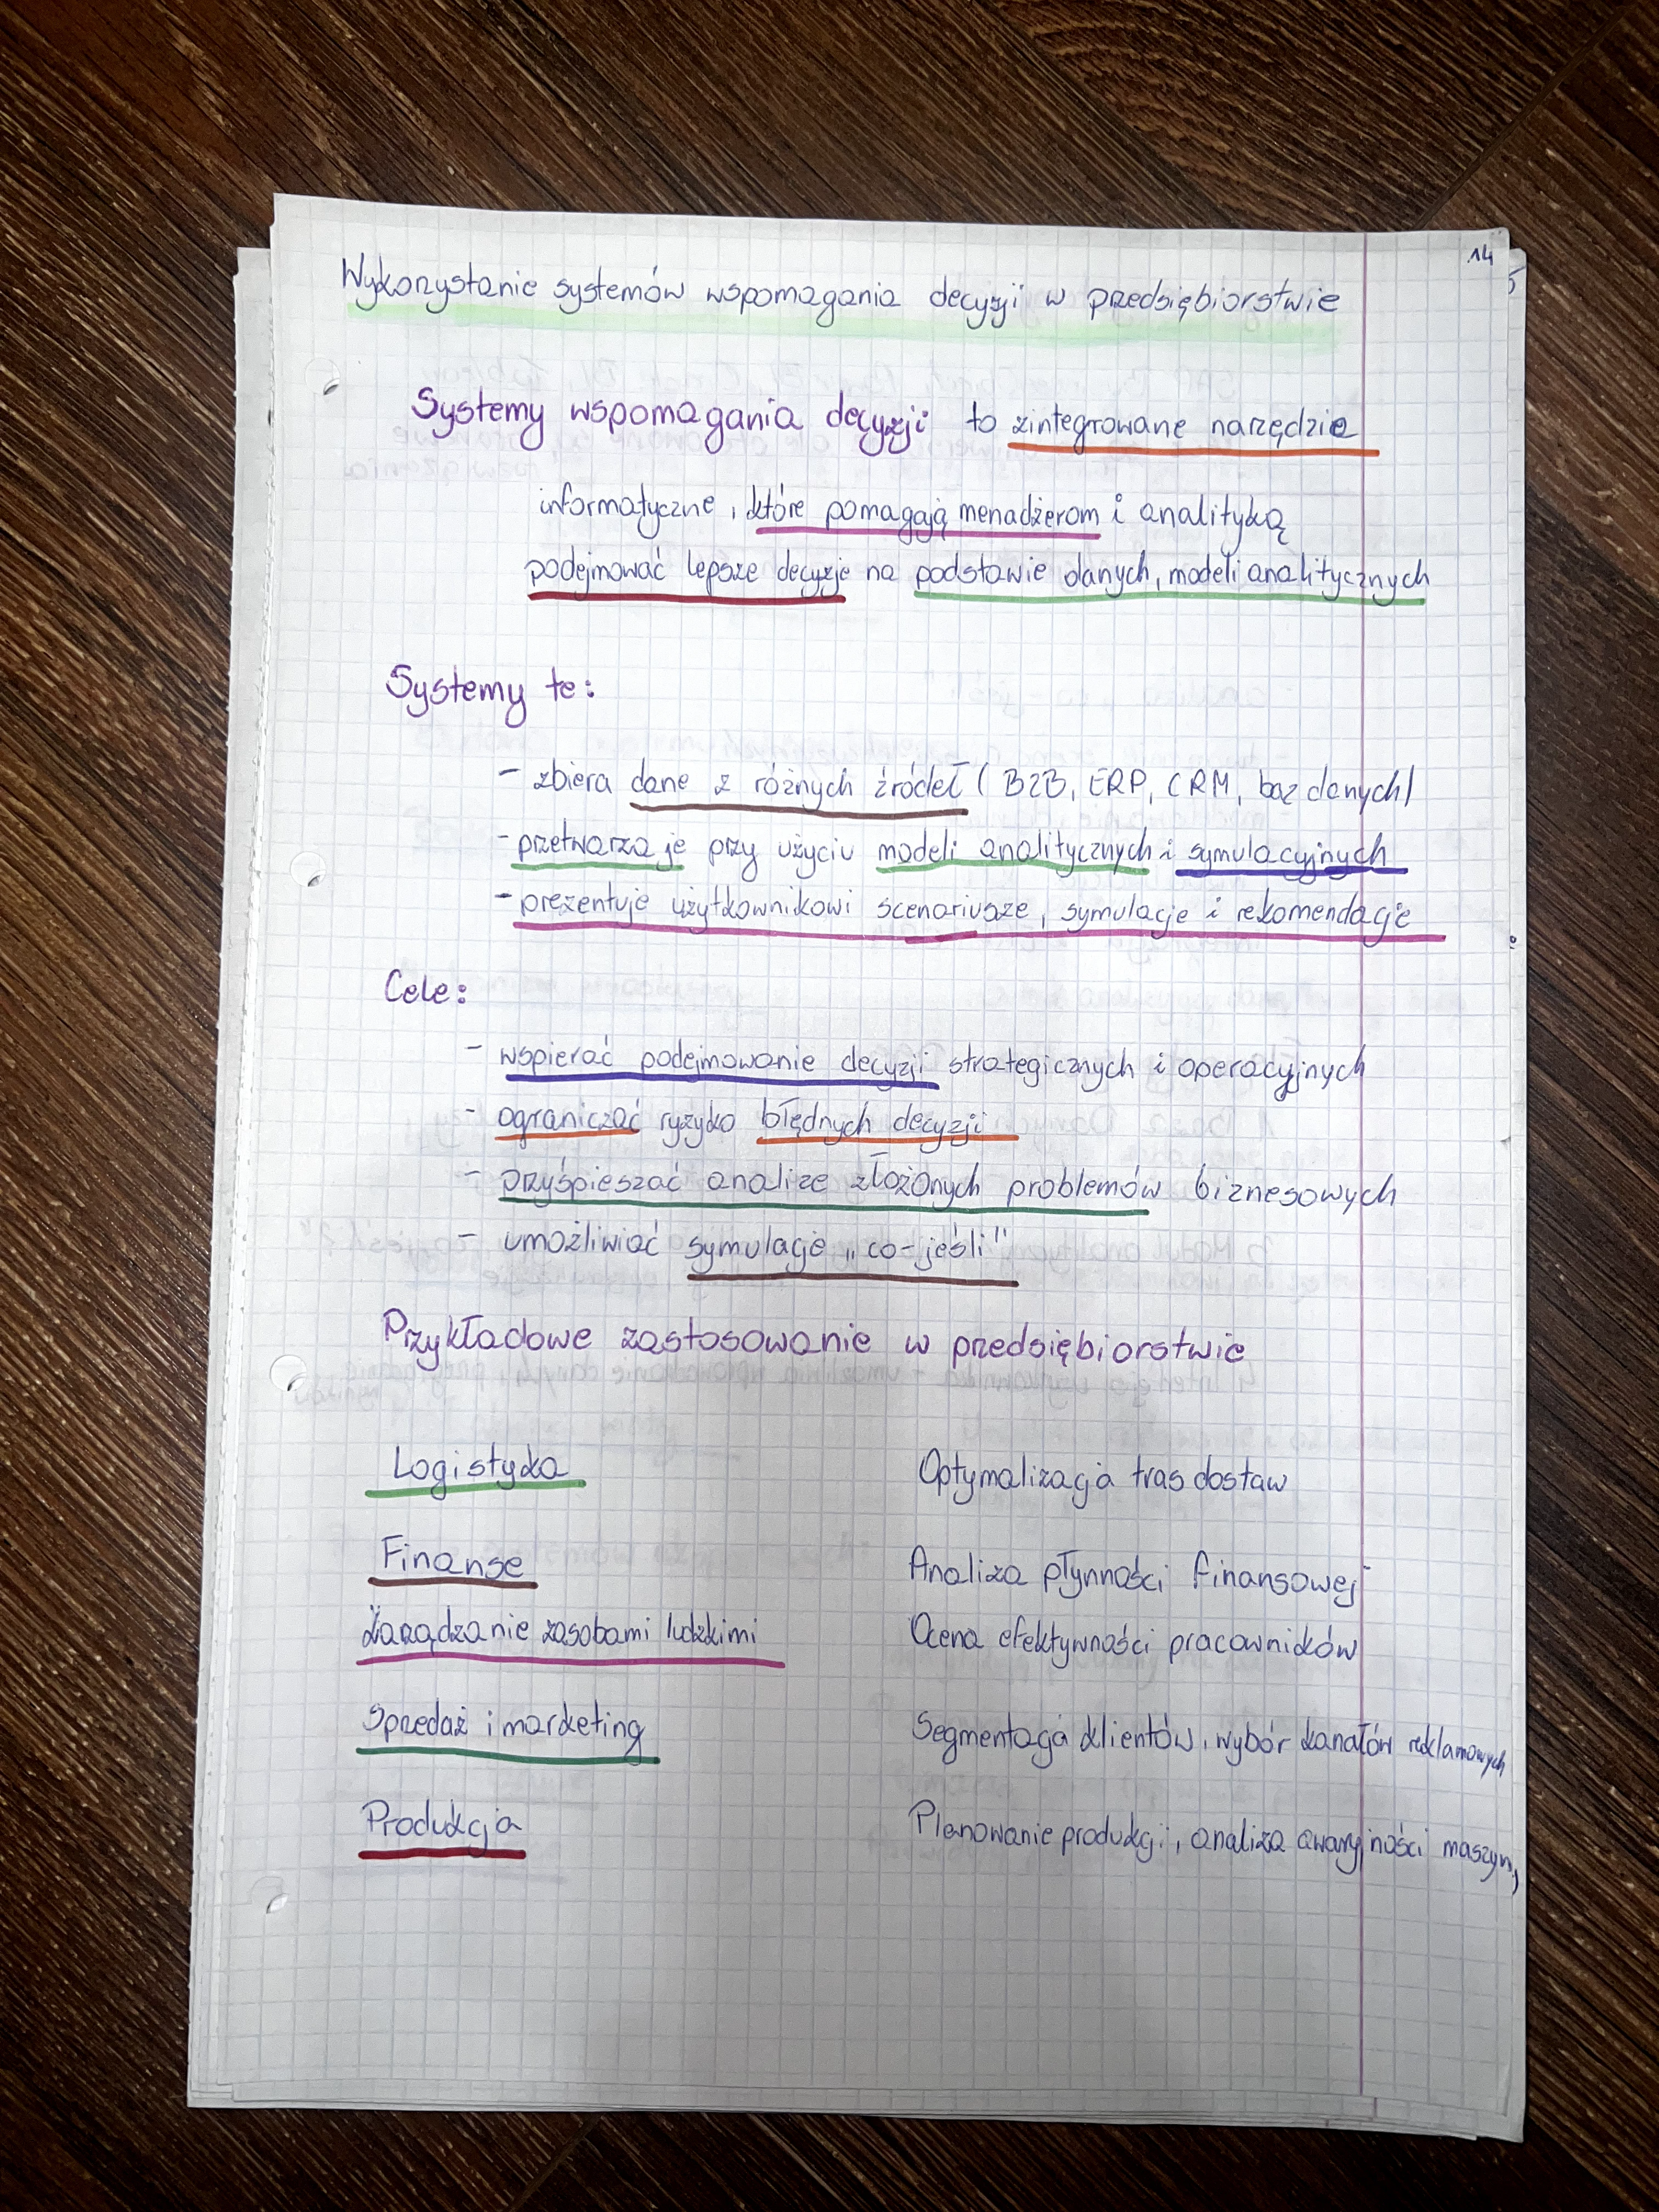 14
Wykorzystanie systemów wspomagania decyzji w przedsiębiorstwie
Systemy wspomagania decyzji to zintegrowane narzędzie
informatyczne, które pomagają menadżerom i analityką
podejmować lepsze decyzje na podstawie danych, modeli analitycznych
Systemy te:
- zbiera dane z różnych źródeł ( B2B, ERP, CRM, baz danych)
- przetwarza je przy użyciu modeli analitycznych i symulacyjnych
- prezentuje użytkownikowi scenariusze, symulacje i rekomendacje
Cele:
- wspierać podejmowanie decyzji strategicznych i operacyjnych
- ograniczać ryzyko błędnych decyzji
- przyśpieszać analize złożonych problemów biznesowych
- umożliwiać symulacje „co-jeśli"
Przykładowe zastosowanie w przedsiębiorstwie
Logistyka Optymalizacja tras dostaw
Finanse Analiza płynności finansowej
Zarządzanie zasobami ludzkimi Ocena efektywności pracowników
Spredaż i marketing Segmentacja klientów, wybór kanałów reklamowych
Produkcja Planowanie produkcji, analiza awaryjności maszyn,